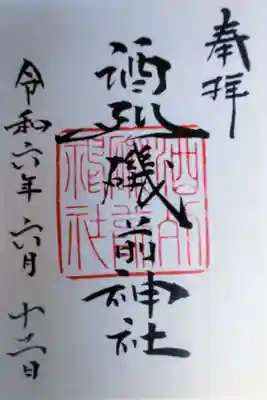 奉拝
酒列磯前神社
酒列
磯前
神社
令和六年六月十二日